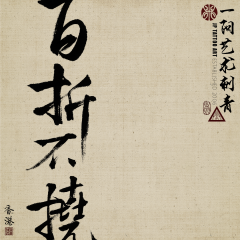 百折不撓
一阿艺术刺青
JP TATTOO ART
香港